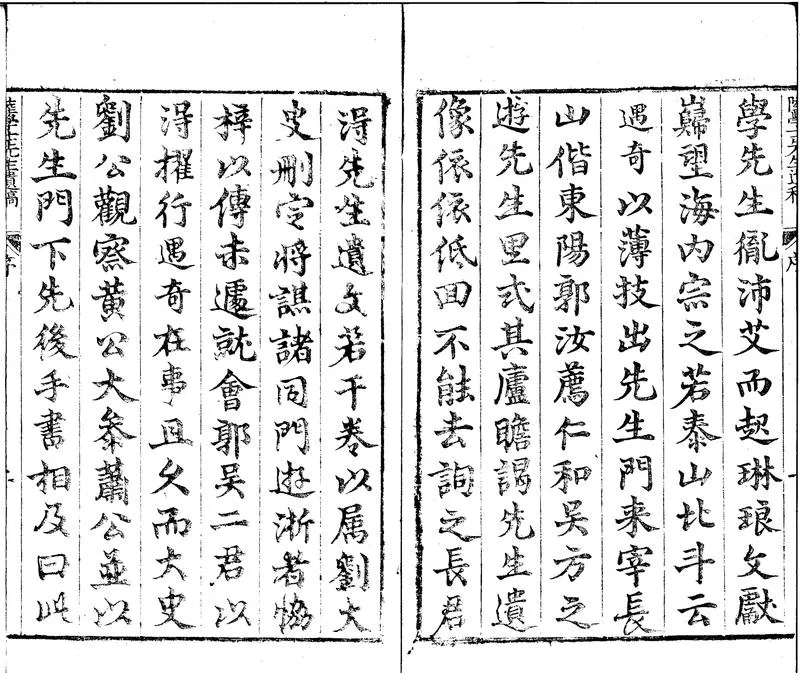 學先生胤沛艾而起琳琅文獻
巋望海內宗之若泰山北斗云
遇奇以薄技出先生門来宰長
山偕東陽郭汝薦仁和吳方之
遊先生里式其廬瞻謁先生遺
像依依低回不能去詢之長君
淂先生遺文若干卷以属劉太
史刪定將謀諸同門逰淅者協
梓以傳未遽就會郭吳二君以
淂擢行遇奇在事且久而太史
劉公觀察黄公大叅蕭公並以
先生門下先後手書相及曰此
陸學士先生遺稿
序